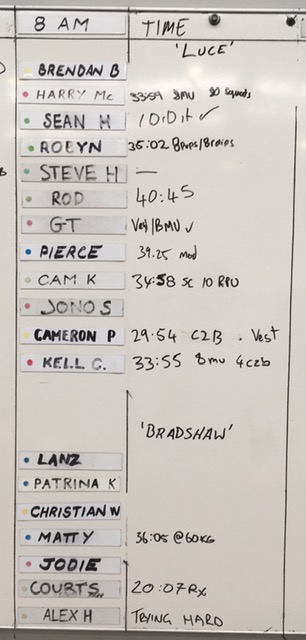 8 AM TIME
'LUCE'
BRENDAN B
HARRY Mc 33:59 8MU 20 squats
SEAN H I DiD it ✓
ROBYN 35:02
STEVE H —
ROD 40:45
GT Vest/BMU ✓
PIERCE 39.25 mod
CAM K 34:58 SC 10 RPU
JONO S
CAMERON P 29:54 C2B . Vest
KELL C. 33:55 8mu 4c2b
'BRADSHAW'
LANZ
PATRINA K
CHRISTIAN W
MATTY 36:05 @60KG
JODIE
COURTS 20:07 Rx
ALEX H TRYING HARD